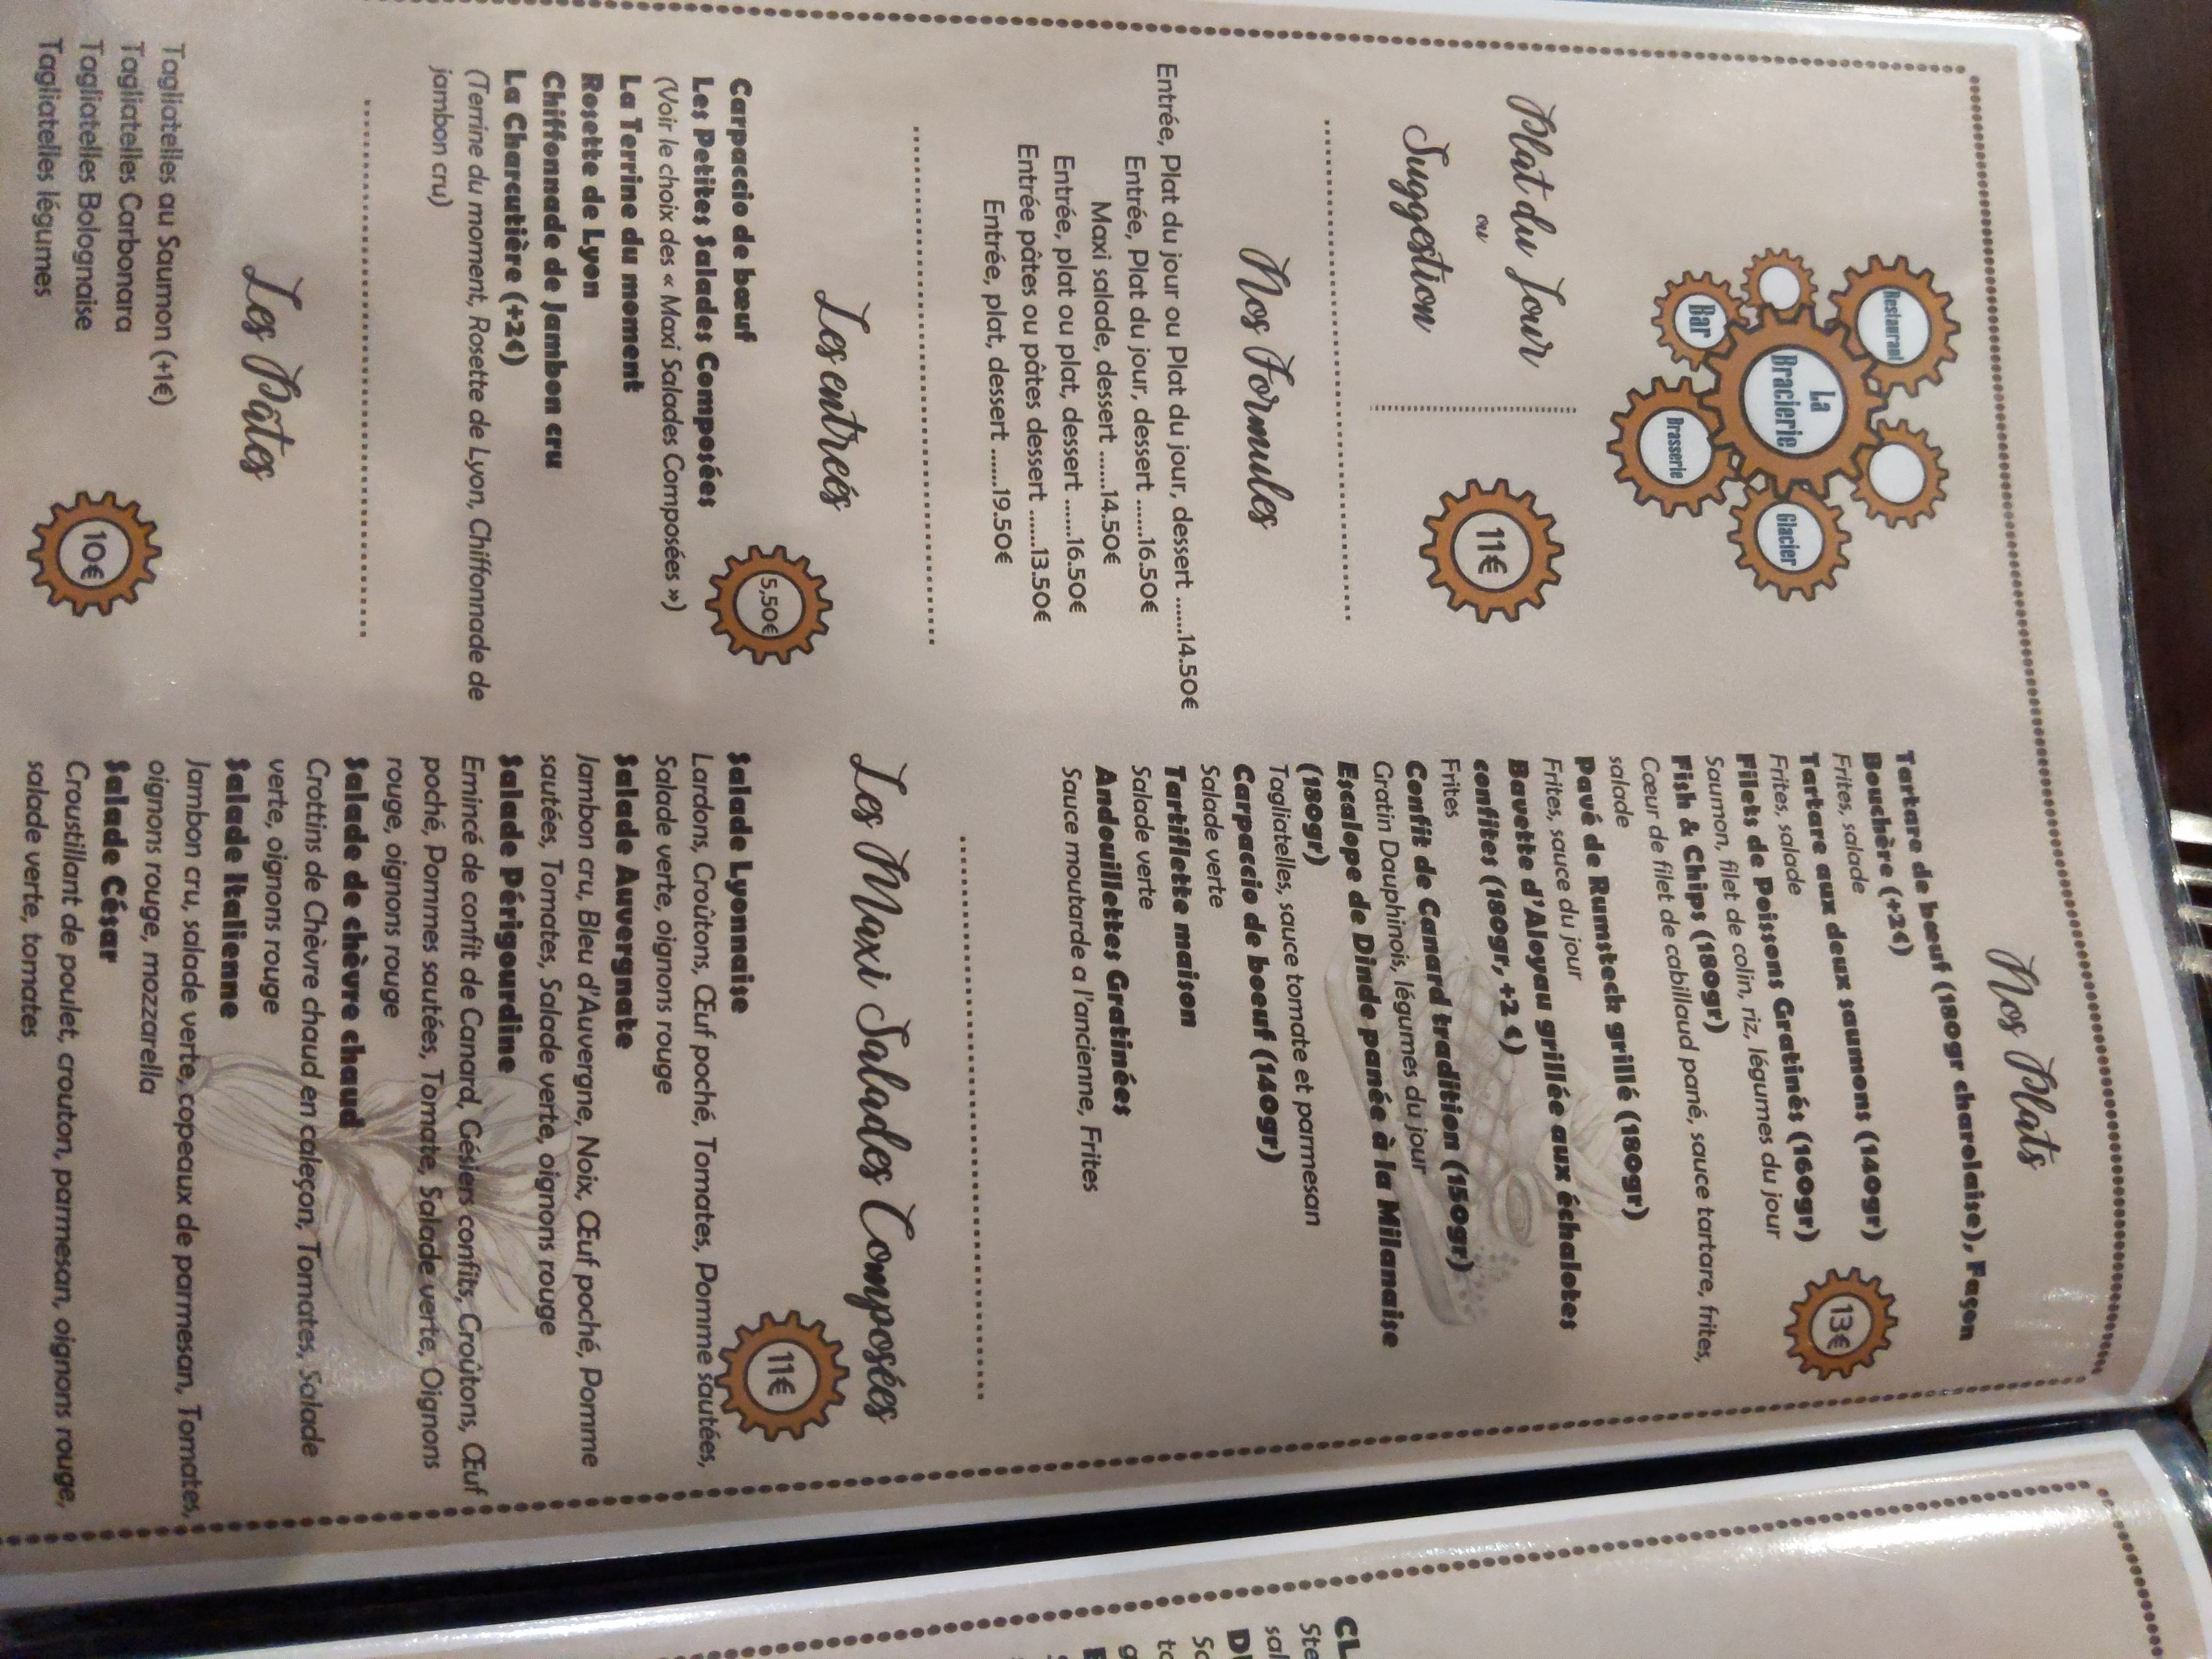 Restaurant
La
Bracierie
Bar
Brasserie
Glacier
Plat du Jour
ou
Suggestion
11€
Nos Formules
Entrée, Plat du jour ou Plat du jour, dessert ......14.50€
Entrée, Plat du jour, dessert ......16.50€
Maxi salade, dessert ......14.50€
Entrée, plat ou plat, dessert .......16.50€
Entrée pâtes ou pâtes dessert ......13.50€
Entrée, plat, dessert .......19.50€
Les entreés
5,50€
Carpaccio de bœuf
Les Petites Salades Composées
(Voir le choix des « Maxi Salades Composées »)
La Terrine du moment
Rosette de Lyon
Chiffonnade de Jambon cru
La Charcutière (+2€)
(Terrine du moment, Rosette de Lyon, Chiffonnade de
jambon cru)
Les Pâtes
Tagliatelles au Saumon (+1€)
Tagliatelles Carbonara
Tagliatelles Bolognaise
Tagliatelles légumes
10€
Nos Plats
Tartare de bœuf (180gr charolaise), Façon
Bouchère (+2€)
Frites, salade
Tartare aux deux saumons (140gr)
Frites, salade
13€
Filets de Poissons Gratinés (160gr)
Saumon, filet de colin, riz, légumes du jour
Fish & Chips (180gr)
Cœur de filet de cabillaud pané, sauce tartare, frites,
salade
Pavé de Rumsteck grillé (180gr)
Frites, sauce du jour
Bavette d'Aloyau grillée aux échalotes
confites (180gr, +2 €)
Frites
Confit de Canard tradition (150gr)
Gratin Dauphinois, légumes du jour
Escalope de Dinde panée à la Milanaise
(180gr)
Tagliatelles, sauce tomate et parmesan
Carpaccio de boeuf (140gr)
Salade verte
Tartiflette maison
Salade verte
Andouillettes Gratinées
Sauce moutarde a l'ancienne, Frites
Les Maxi Salades Composées
11€
Salade Lyonnaise
Lardons, Croûtons, Œuf poché, Tomates, Pomme sautées,
Salade verte, oignons rouge
Salade Auvergnate
Jambon cru, Bleu d'Auvergne, Noix, Œuf poché, Pomme
sautées, Tomates, Salade verte, oignons rouge
Salade Périgourdine
Emincé de confit de Canard, Gésiers confits, Croûtons, Œuf
poché, Pommes sautées, Tomate, Salade verte, Oignons
rouge, oignons rouge
Salade de chèvre chaud
Crottins de Chèvre chaud en caleçon, Tomates, Salade
verte, oignons rouge
Salade Italienne
Jambon cru, salade verte, copeaux de parmesan, Tomates,
oignons rouge, mozzarella
Salade César
Croustillant de poulet, crouton, parmesan, oignons rouge,
salade verte, tomates
CL
Ste
sal